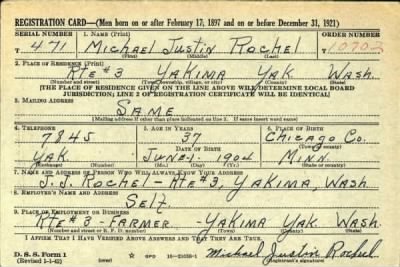 REGISTRATION CARD—(Men born on or after February 17, 1897 and on or before December 31, 1921)
SERIAL NUMBER 1. NAME (Print) ORDER NUMBER
T 471 Michael Justin Rochel 10702
(First) (Middle) (Last)
2. PLACE OF RESIDENCE (Print)
Rte #3 YAKIMA YAK WASH.
(Number and street) (Town, township, village, or city) (County) (State)
[THE PLACE OF RESIDENCE GIVEN ON THE LINE ABOVE WILL DETERMINE LOCAL BOARD
JURISDICTION; LINE 2 OF REGISTRATION CERTIFICATE WILL BE IDENTICAL]
3. MAILING ADDRESS
SAME
[Mailing address if other than place indicated on line 2. If same insert word same]
4. TELEPHONE 5. AGE IN YEARS 6. PLACE OF BIRTH
7845 37 Chicago Co.
DATE OF BIRTH (Town or county)
YAK. JUNE-1- 1904 MINN
(Exchange) (Number) (Mo.) (Day) (Yr.) (State or country)
7. NAME AND ADDRESS OF PERSON WHO WILL ALWAYS KNOW YOUR ADDRESS
J. J. ROCHEL - Rte #3, YAKIMA, WASH.
8. EMPLOYER'S NAME AND ADDRESS
Self.
9. PLACE OF EMPLOYMENT OR BUSINESS
Rte #3 - FARMER - YAKIMA YAK WASH.
(Number and street or R. F. D. number) (Town) (County) (State)
I AFFIRM THAT I HAVE VERIFIED ABOVE ANSWERS AND THAT THEY ARE TRUE.
D. S. S. Form 1
(Revised 1-1-42) (over) GPO Michael Justin Rochel
(Registrant's signature)